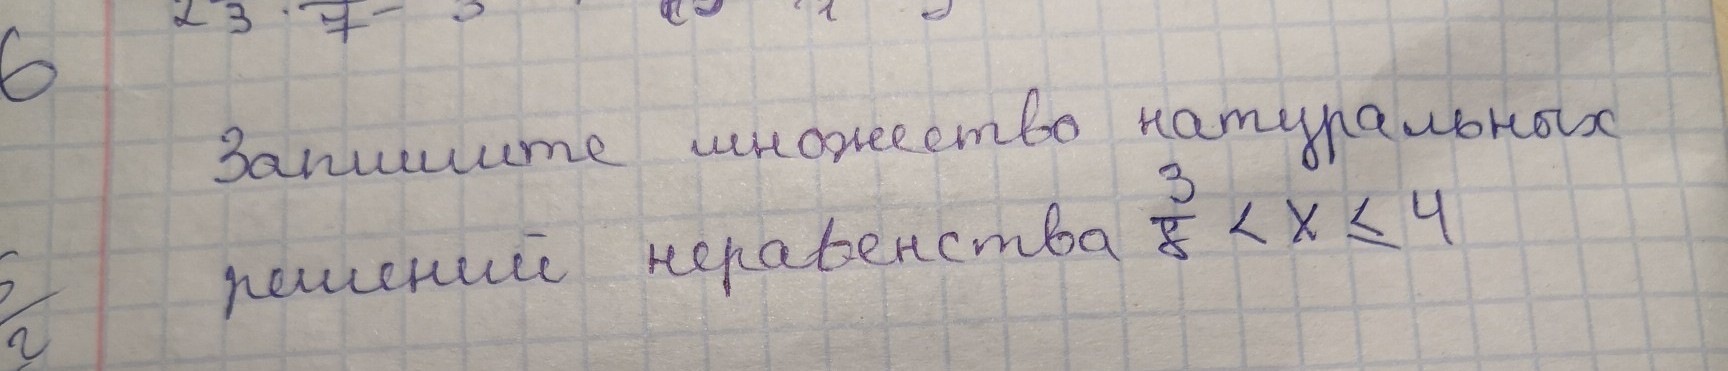 6
Запишите множество натуральных
решений неравенства 3/8 < x ≤ 4